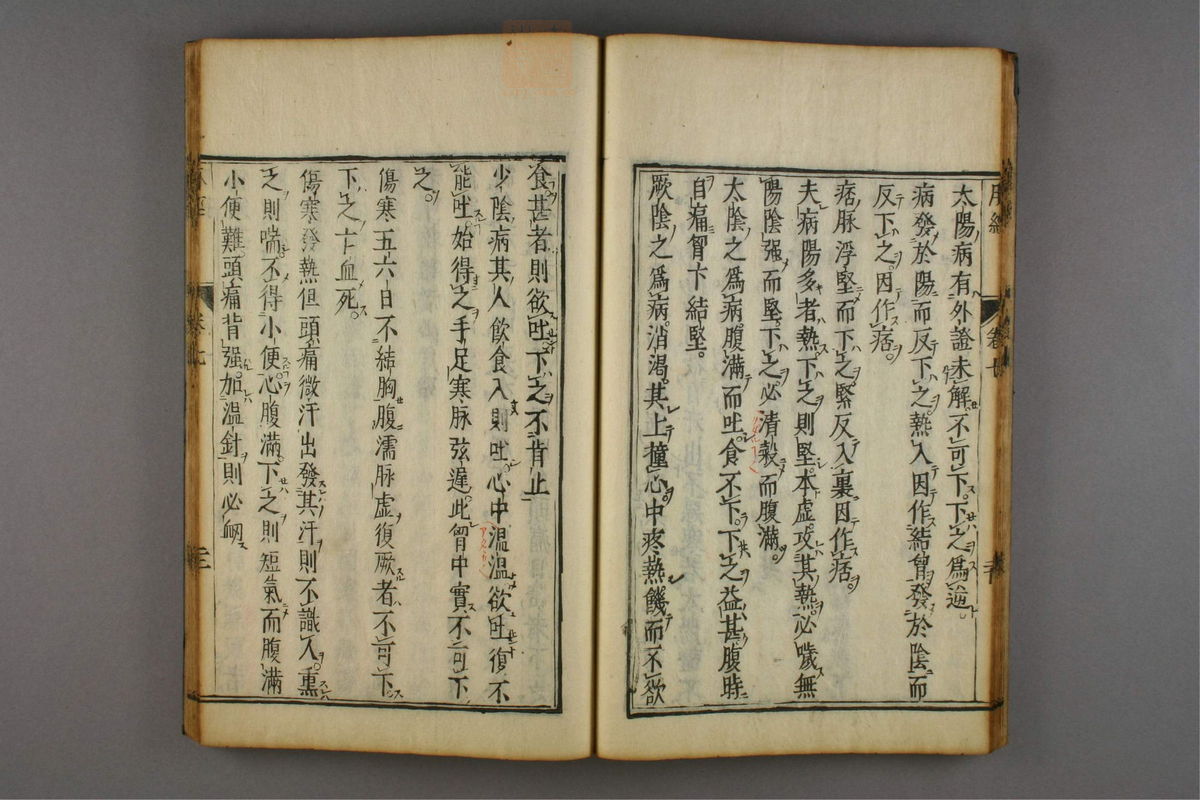 太陽病有外證未解不可下下之爲逆
病發於陽而反下之熱入因作結胷發於陰而
反下之因作痞
痞脉浮堅而下之緊反入裏因作痞
夫病陽多者熱下之則堅本虛攻其熱必噦無
陽陰强而堅下之必清穀而腹滿
太陰之爲病腹滿而吐食不下下之益甚腹時
自痛胷下結堅
厥陰之爲病消渴其上撞心中疼熱饑而不欲
食甚者則欲吐下之不肯止
少陰病其人飲食入則吐心中温温欲吐復不
能吐始得之手足寒脉弦遲此胷中實不可下
之
傷寒五六日不結胸腹濡脉虛復厥者不可下
下之亡血死
傷寒發熱但頭痛微汗出發其汗則不識人熏
之則喘不得小便心腹滿下之則短氣而腹滿
小便難頭痛背强加温針則必衂